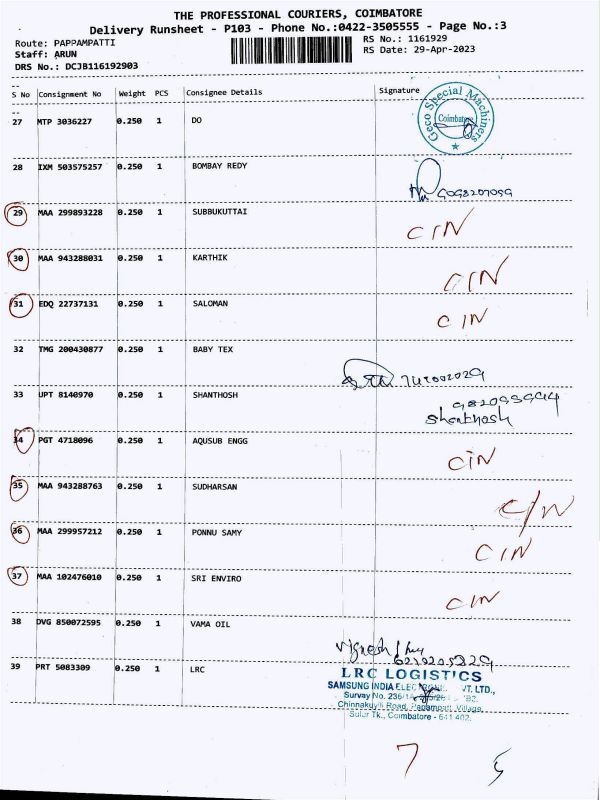 THE PROFESSIONAL COURIERS, COIMBATORE
Delivery Runsheet - P103 - Phone No.:0422-3505555 - Page No.:3
Route: PAPPAMPATTI
RS No.: 1161929
Staff: ARUN
RS Date: 29-Apr-2023
DRS No.: DCJB116192903
S No Consignment No Weight PCS Consignee Details Signature
27 MTP 3036227 0.250 1 DO
Geco Special Machiners
Coimbatore
28 IXM 503575257 0.250 1 BOMBAY REDY
29 MAA 299893228 0.250 1 SUBBUKUTTAI
CIN
30 MAA 943288031 0.250 1 KARTHIK
CIN
31 EDQ 22737131 0.250 1 SALOMAN
CIN
32 TMG 200430877 0.250 1 BABY TEX
33 UPT 8140970 0.250 1 SHANTHOSH
Shanthosh
34 PGT 4718096 0.250 1 AQUSUB ENGG
CIN
35 MAA 943288763 0.250 1 SUDHARSAN
C/N
36 MAA 299957212 0.250 1 PONNU SAMY
CIN
37 MAA 102476010 0.250 1 SRI ENVIRO
CIN
38 DVG 850072595 0.250 1 VAMA OIL
39 PRT 5083309 0.250 1 LRC
LRC LOGISTICS
SAMSUNG INDIA VT. LTD.,
Survey No.
Chinnakuyili Road, Papampatti Village,
Sulur Tk., Coimbatore - 641 402.
7 5